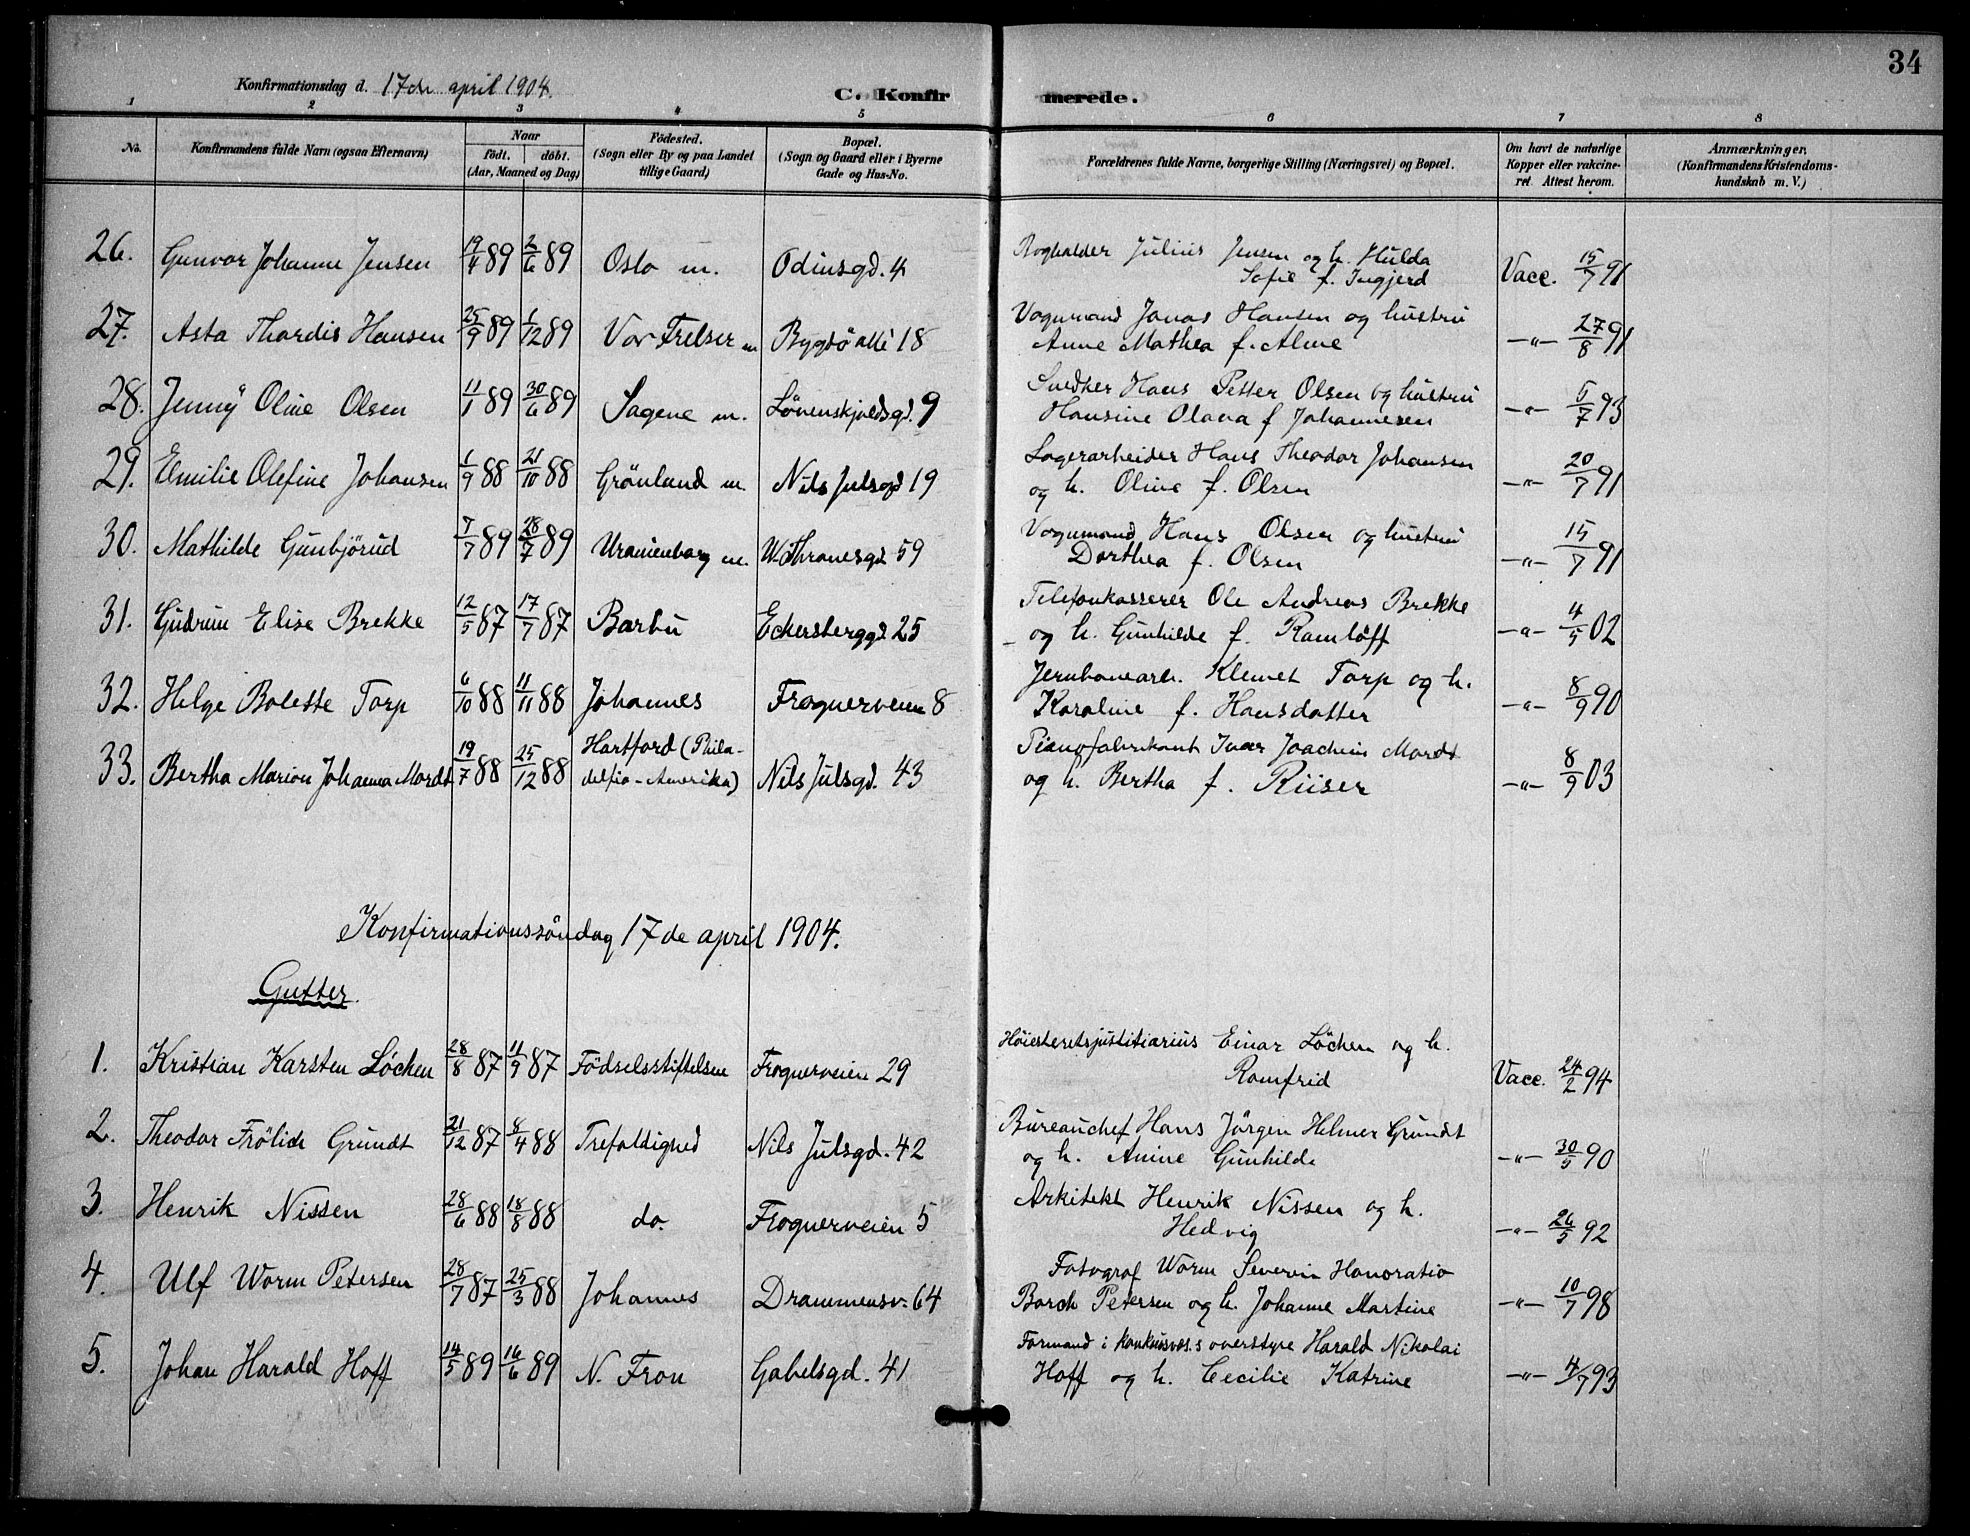 34
Konfirmationsdag d. 17de april 1904.
C. Konfirmerede.
1 2 3 4 5 6 7 8
No. Konfirmandens fulde Navn (ogsaa Efternavn) Naar født. døbt. (Aar, Maaned og Dag) Fødested. (Sogn eller By og paa Landet tillige Gaard) Bopæl. (Sogn og Gaard eller i Byerne Gade og Hus-No. Forældrenes fulde Navne, borgerlige Stilling (Næringsvei) og Bopæl. Om havt de naturlige Kopper eller vakcineret. Attest herom. Anmærkninger. (Konfirmandens Kristendomskundskab m. V.)
26. Gunvor Johanne Jensen 19/4 89 2/6 89 Oslo m. Odinsgd. 4 Bogholder Julius Jensen og h. Hulda
Sofie f. Ingjerd Vacc. 15/7 91
27. Asta Thordis Hansen 25/9 89 1/12 89 Vor Frelser m Bygdö allé 18 Vognmand Jonas Hansen og hustru
Anne Mathea f. Alme -"- 27/8 91
28. Jenny Oline Olsen 11/1 89 30/6 89 Sagene m. Løvenskjoldsgd. 9 Snedker Hans Petter Olsen og hustru
Hansine Olava f Johannesen -"- 5/7 93
29. Emilie Olefine Johansen 1/9 88 21/10 88 Grönland m. Nils Julsgd 19 Lagerarbeider Hans Theodor Johansen
og h. Oline f. Olsen -"- 20/7 91
30. Mathilde Gunbjörud 7/7 89 28/7 89 Uranienborg m. W. Thranesgd 59 Vognmand Hans Olsen og hustru
Dorthea f. Olsen -"- 15/7 91
31. Gudrun Elise Brekke 12/5 87 17/7 87 Barbu Eckersberggd 25 Telefonkasserer Ole Andreas Brekke
og h. Gunhilde f. Ramlöff -"- 4/5 02
32. Helga Bolette Torp 6/10 88 11/11 88 Johannes Frognerveien 8 Jernbanearb. Klemet Torp og h.
Karoline f. Hansdatter -"- 8/9 90
33. Bertha Marion Johanna Mordt 19/7 88 25/12 88 Hartford (Phila-
delfia-Amerika) Nils Julsgd. 43 Pianofabrikant Ivar Joachim Mordt
og h. Bertha f. Riiser -"- 8/9 03
Konfirmationssöndag 17de april 1904.
Gutter.
1. Kristian Karsten Löchen 28/8 87 11/9 87 Födselsstiftelsen Frognerveien 29 Höiesteretsjustitiarius Einar Löchen og h.
Ramfrid Vacc. 24/2 94
2. Theodor Frölich Grundt 21/12 87 8/4 88 Trefoldighed Nils Julsgd. 42 Bureauchef Hans Jörgen Helmer Grundt
og h. Anine Gunhilde -"- 30/5 90
3. Henrik Nissen 28/6 88 18/8 88 do. Frognerveien 5 Arkitekt Henrik Nissen og h.
Hedvig -"- 26/5 92
4. Ulf Worm Petersen 28/7 87 25/3 88 Johannes Drammensv. 64 Fotograf Worm Severin Honoratio
Borch Petersen og h. Johanne Martine -"- 10/7 98
5. Johan Harald Hoff 14/5 89 16/6 89 N. Fron Gabelsgd. 41 Formand i konkursvæs.s overstyre Harald Nikolai
Hoff og h. Cecilie Katrine -"- 4/7 93